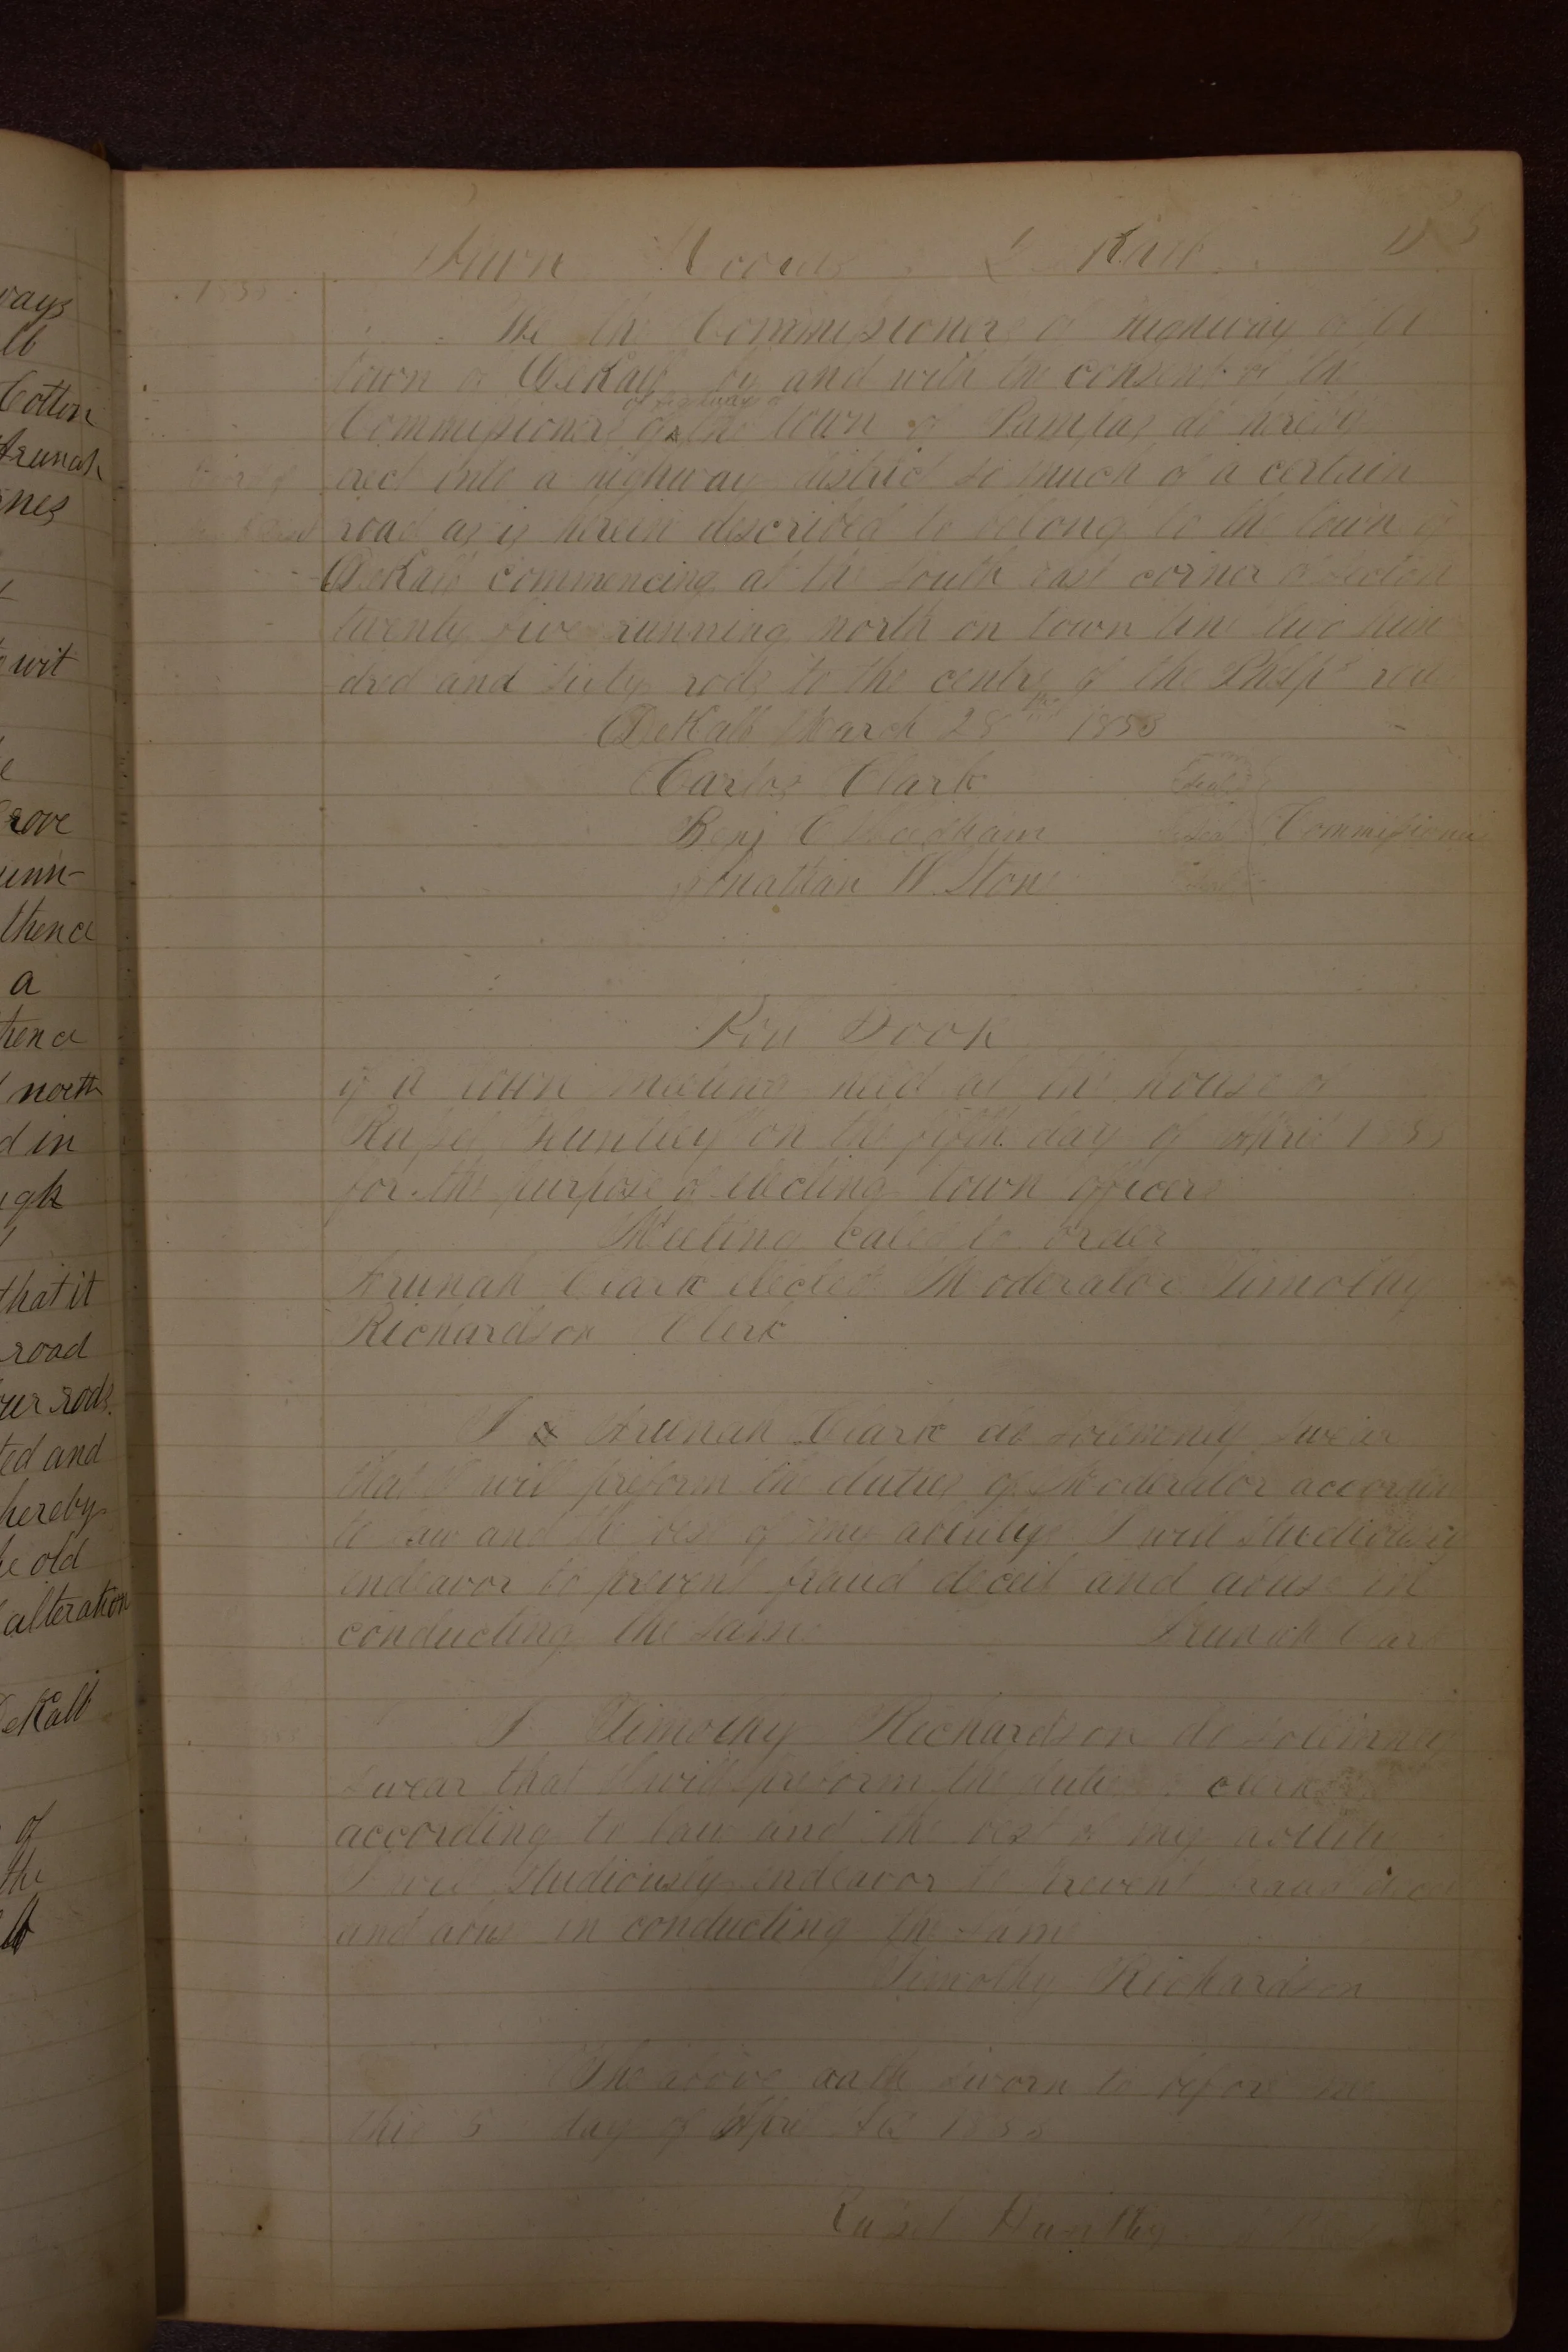 ways
lb
Cotton
Arunah
nes
wit
rove
unn-
thence
a
hence
north
d in
igh
that it
road
our rods.
ted and
hereby
he old
alteration
DeKalb
of
the
Town Records DeKalb
We the Commissioners of highway of the
town of DeKalb by and with the consent of the
of highway
Commissioners of the town of Pampas do hereby
erect into a highway district so much of a certain
road as is herein described to belong to the town of
DeKalb commencing at the south east corner of section
twenty five running north on town line two hun
dred and sixty rods to the centre of the Phelps road
DeKalb March 28th 1853
Carlos Clark Seal
Benj C Needham Seal Commissioners
Jonathan W. Stone Seal
Poll Book
of a town meeting held at the house of
Russel Huntley on the fifth day of April 1853
for the purpose of electing town officers
Meeting caled to order
Arunah Clark elected Moderator Timothy
Richardson Clerk
I Arunah Clark do solemnly swear
that I will preform the duties of Moderator according
to law and the best of my ability I will studiously
endeavor to prevent fraud deceit and abuse in
conducting the same Arunah Clark
I Timothy Richardson do solemnly
swear that I will preform the duties of clerk
according to law and the best of my ability
I will studiously endeavor to prevent fraud deceit
and abuse in conducting the same
Timothy Richardson
The above oath sworn to before me
this 5 day of April AD 1853
Russel Huntley